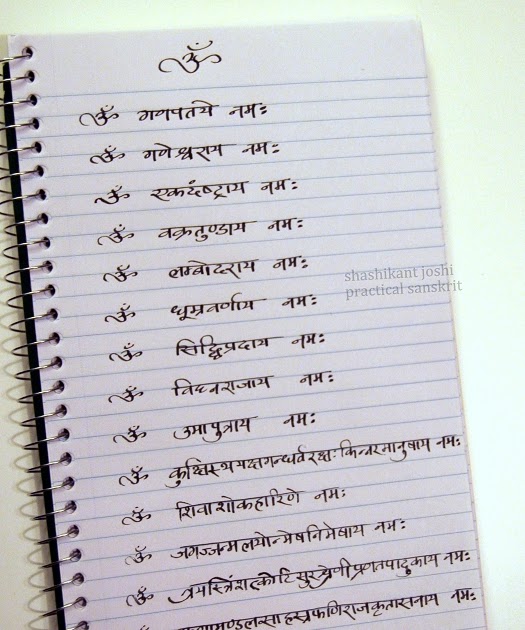 ॐ
ॐ गणपतये नमः
ॐ गणेश्वराय नमः
ॐ एकदंष्ट्राय नमः
ॐ वक्रतुण्डाय नमः
ॐ लम्बोदराय नमः
shashikant joshi
practical sanskrit
ॐ धूम्रवर्णाय नमः
ॐ सिद्धिप्रदाय नमः
ॐ विघ्नराजाय नमः
ॐ उमापुत्राय नमः
ॐ कुक्षिस्थयक्षगन्धर्वरक्षःकिन्नरमानुषाय नमः
ॐ शिवाशोकहारिणे नमः
ॐ जगज्जन्मलयोन्मेषनिमेषाय नमः
ॐ त्रयस्त्रिंशत्कोटिसुरश्रेणीप्रणतपादुकाय नमः
नमः